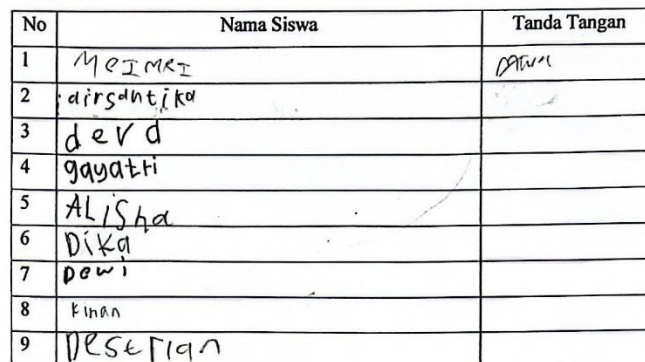 No Nama Siswa Tanda Tangan
1 MeIMeI
2 airsantika
3 deva
4 gayatri
5 ALiSha
6 Dika
7 Dewi
8 kinan
9 Deserian